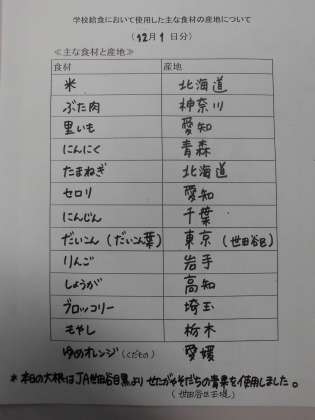 学校給食において使用した主な食材の産地について
(12月1日分)
≪主な食材と産地≫
食材 産地
米 北海道
ぶた肉 神奈川
里いも 愛知
にんにく 青森
たまねぎ 北海道
セロリ 愛知
にんじん 千葉
だいこん(だいこん葉) 東京(世田谷区)
りんご 岩手
しょうが 高知
ブロッコリー 埼玉
もやし 栃木
ゆめオレンジ(くだもの) 愛媛
*本日の大根はJA世田谷目黒より せたがやそだちの青果を使用しました。